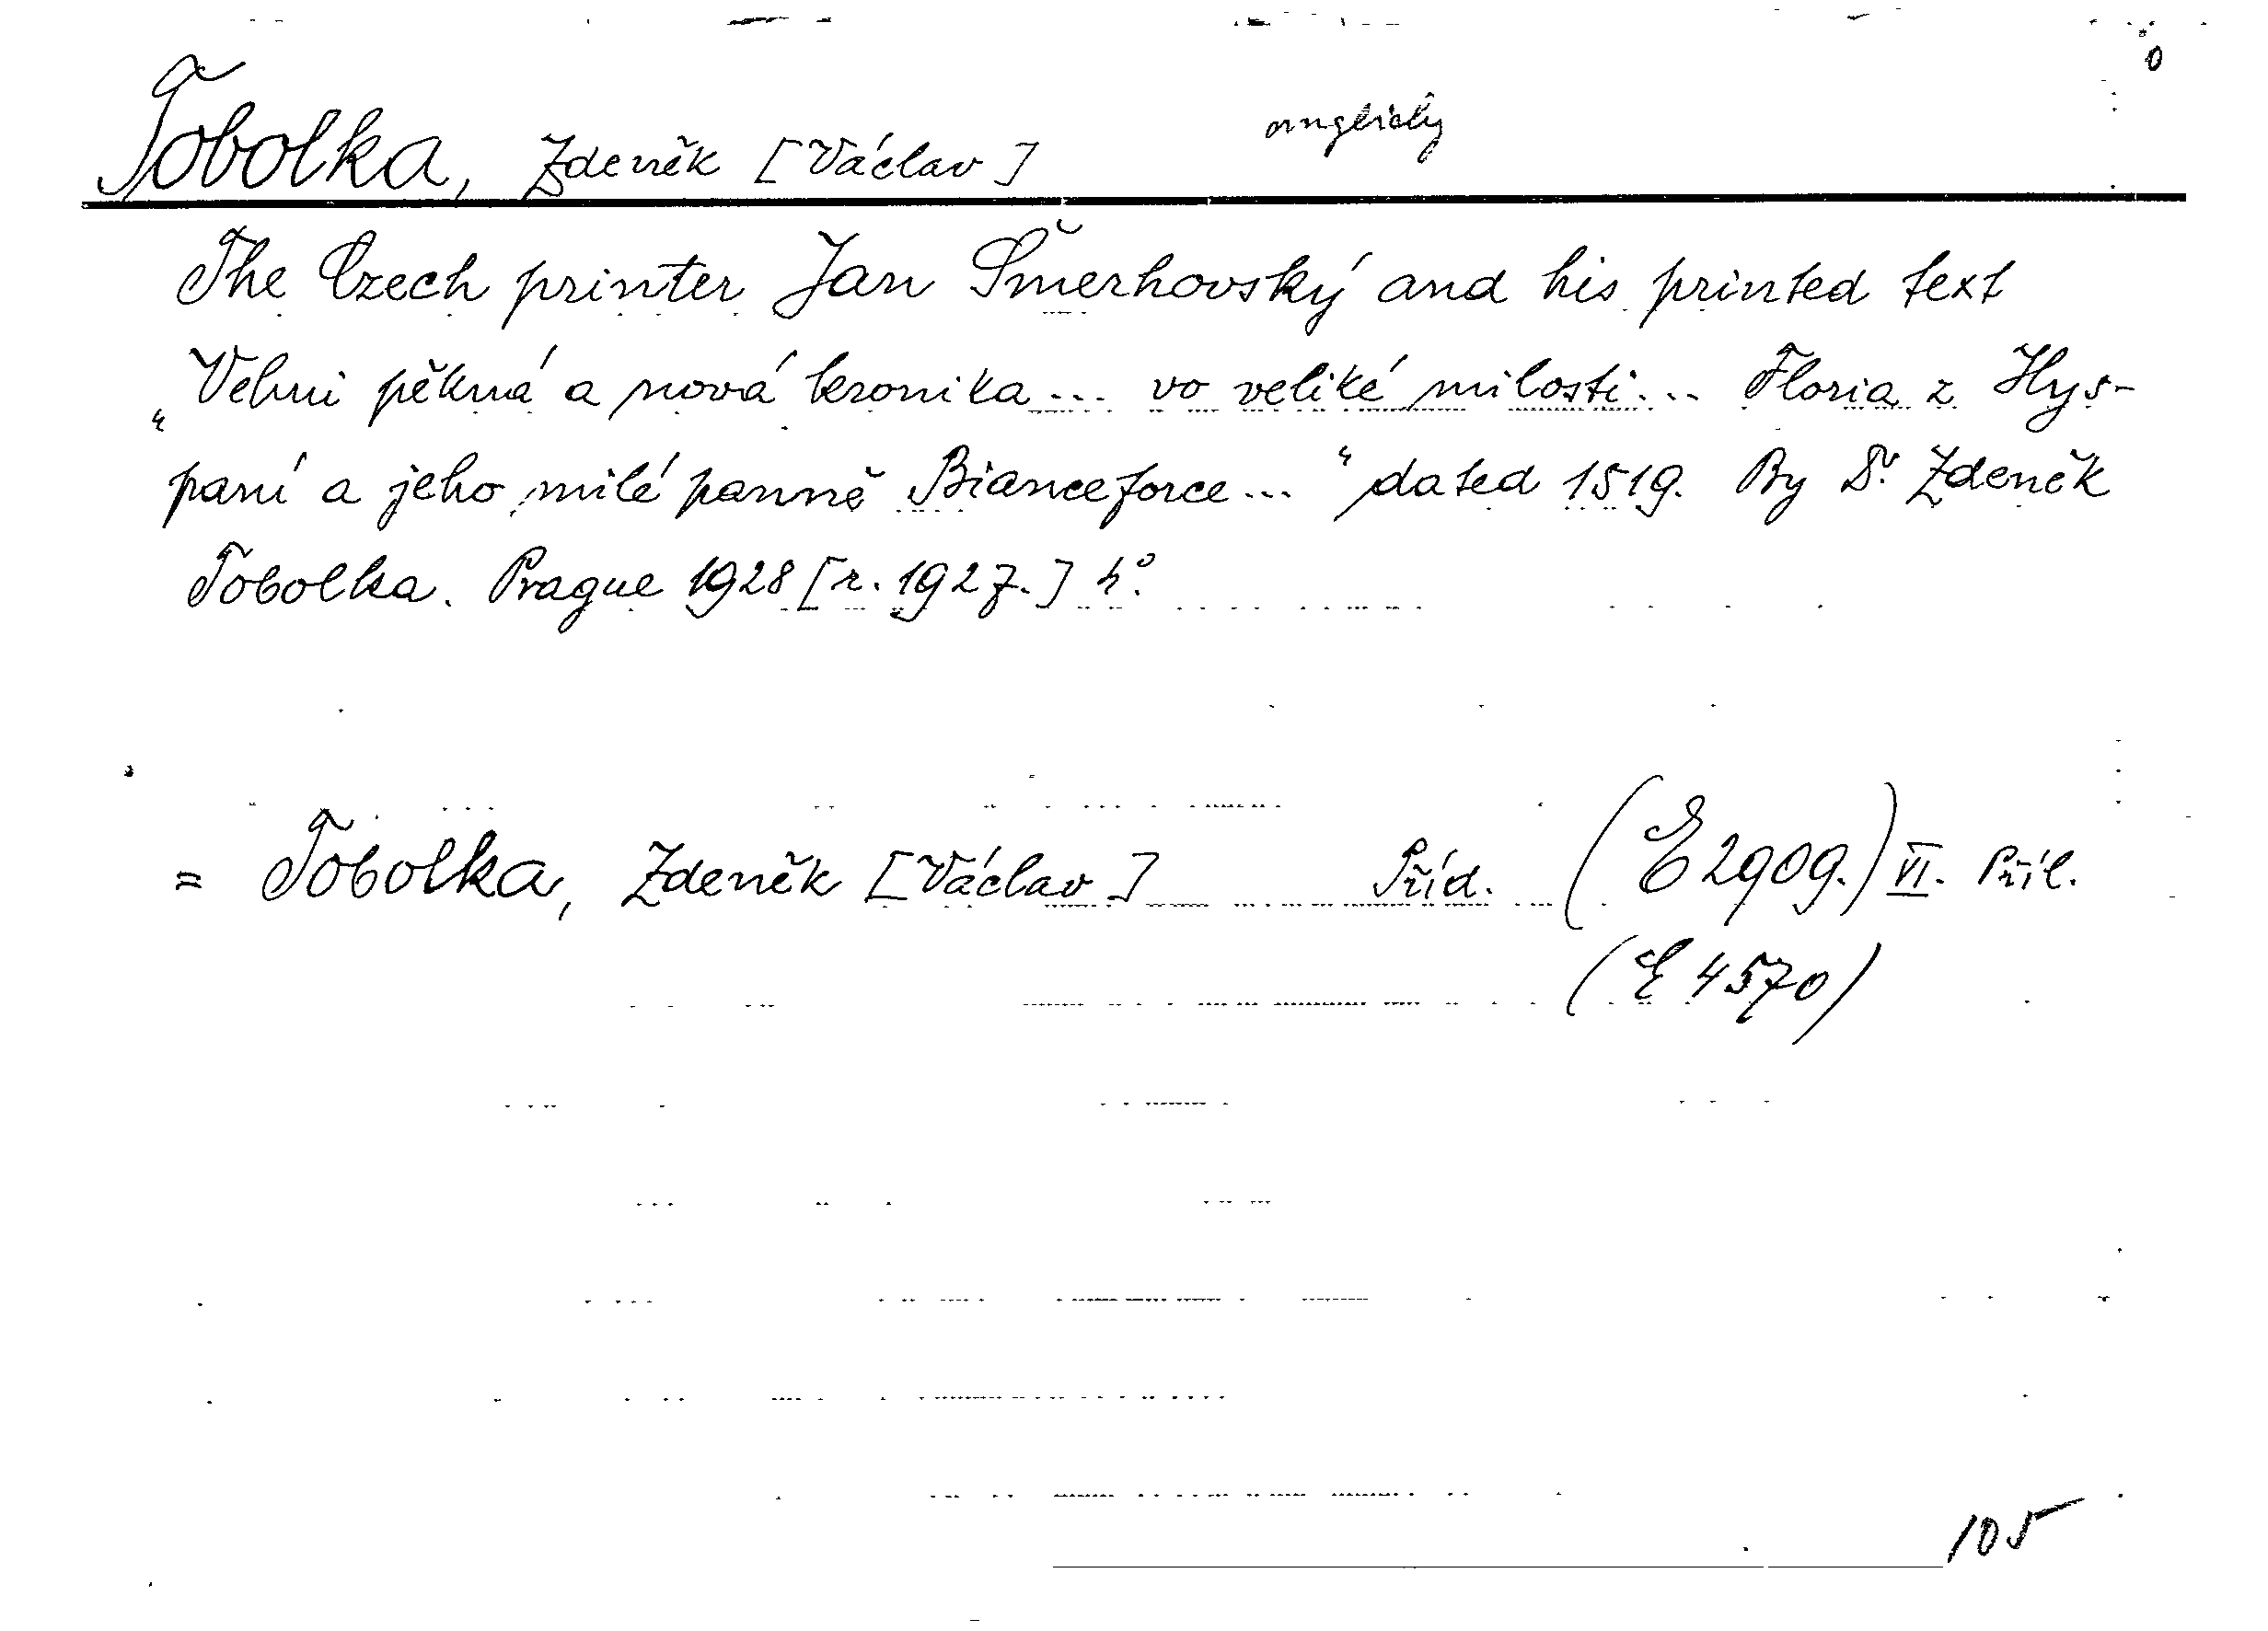 0
anglicky
Tobolka, Zdeněk [Václav]
The Czech printer Jan Šmerhovský and his printed text
„Velmi pěkná a nová kronika... vo veliké milosti... Floria z Hys-
paní a jeho milé panně Bianceforce..." dated 1519. By Dr. Zdeněk
Tobolka. Prague 1928 [r. 1927.] 4°.
= Tobolka, Zdeněk [Václav] Příd. (E 2909.) VI. Příl.
(E 4570)
105